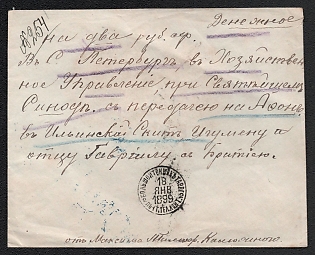 Денежное
на два руб. сер.
Въ С Петербургъ въ Хозяйствен-
ное Управление при Святѣйшемъ
Синодѣ, съ передачею на Афонъ
въ Ильинский Скитъ Игумену а
отцу Гавриилу съ Братіею.
18
ЯНВ
1899
отъ Максима